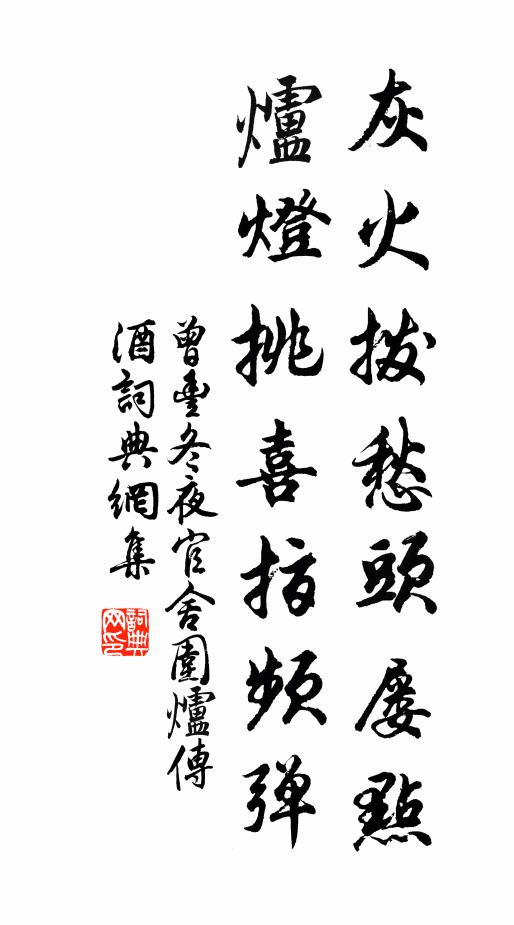 灰火拨愁頭屡點
爐燈挑喜指頻弹
曾豊冬夜官舍圍爐傳
酒詞典網集
詞典
网印